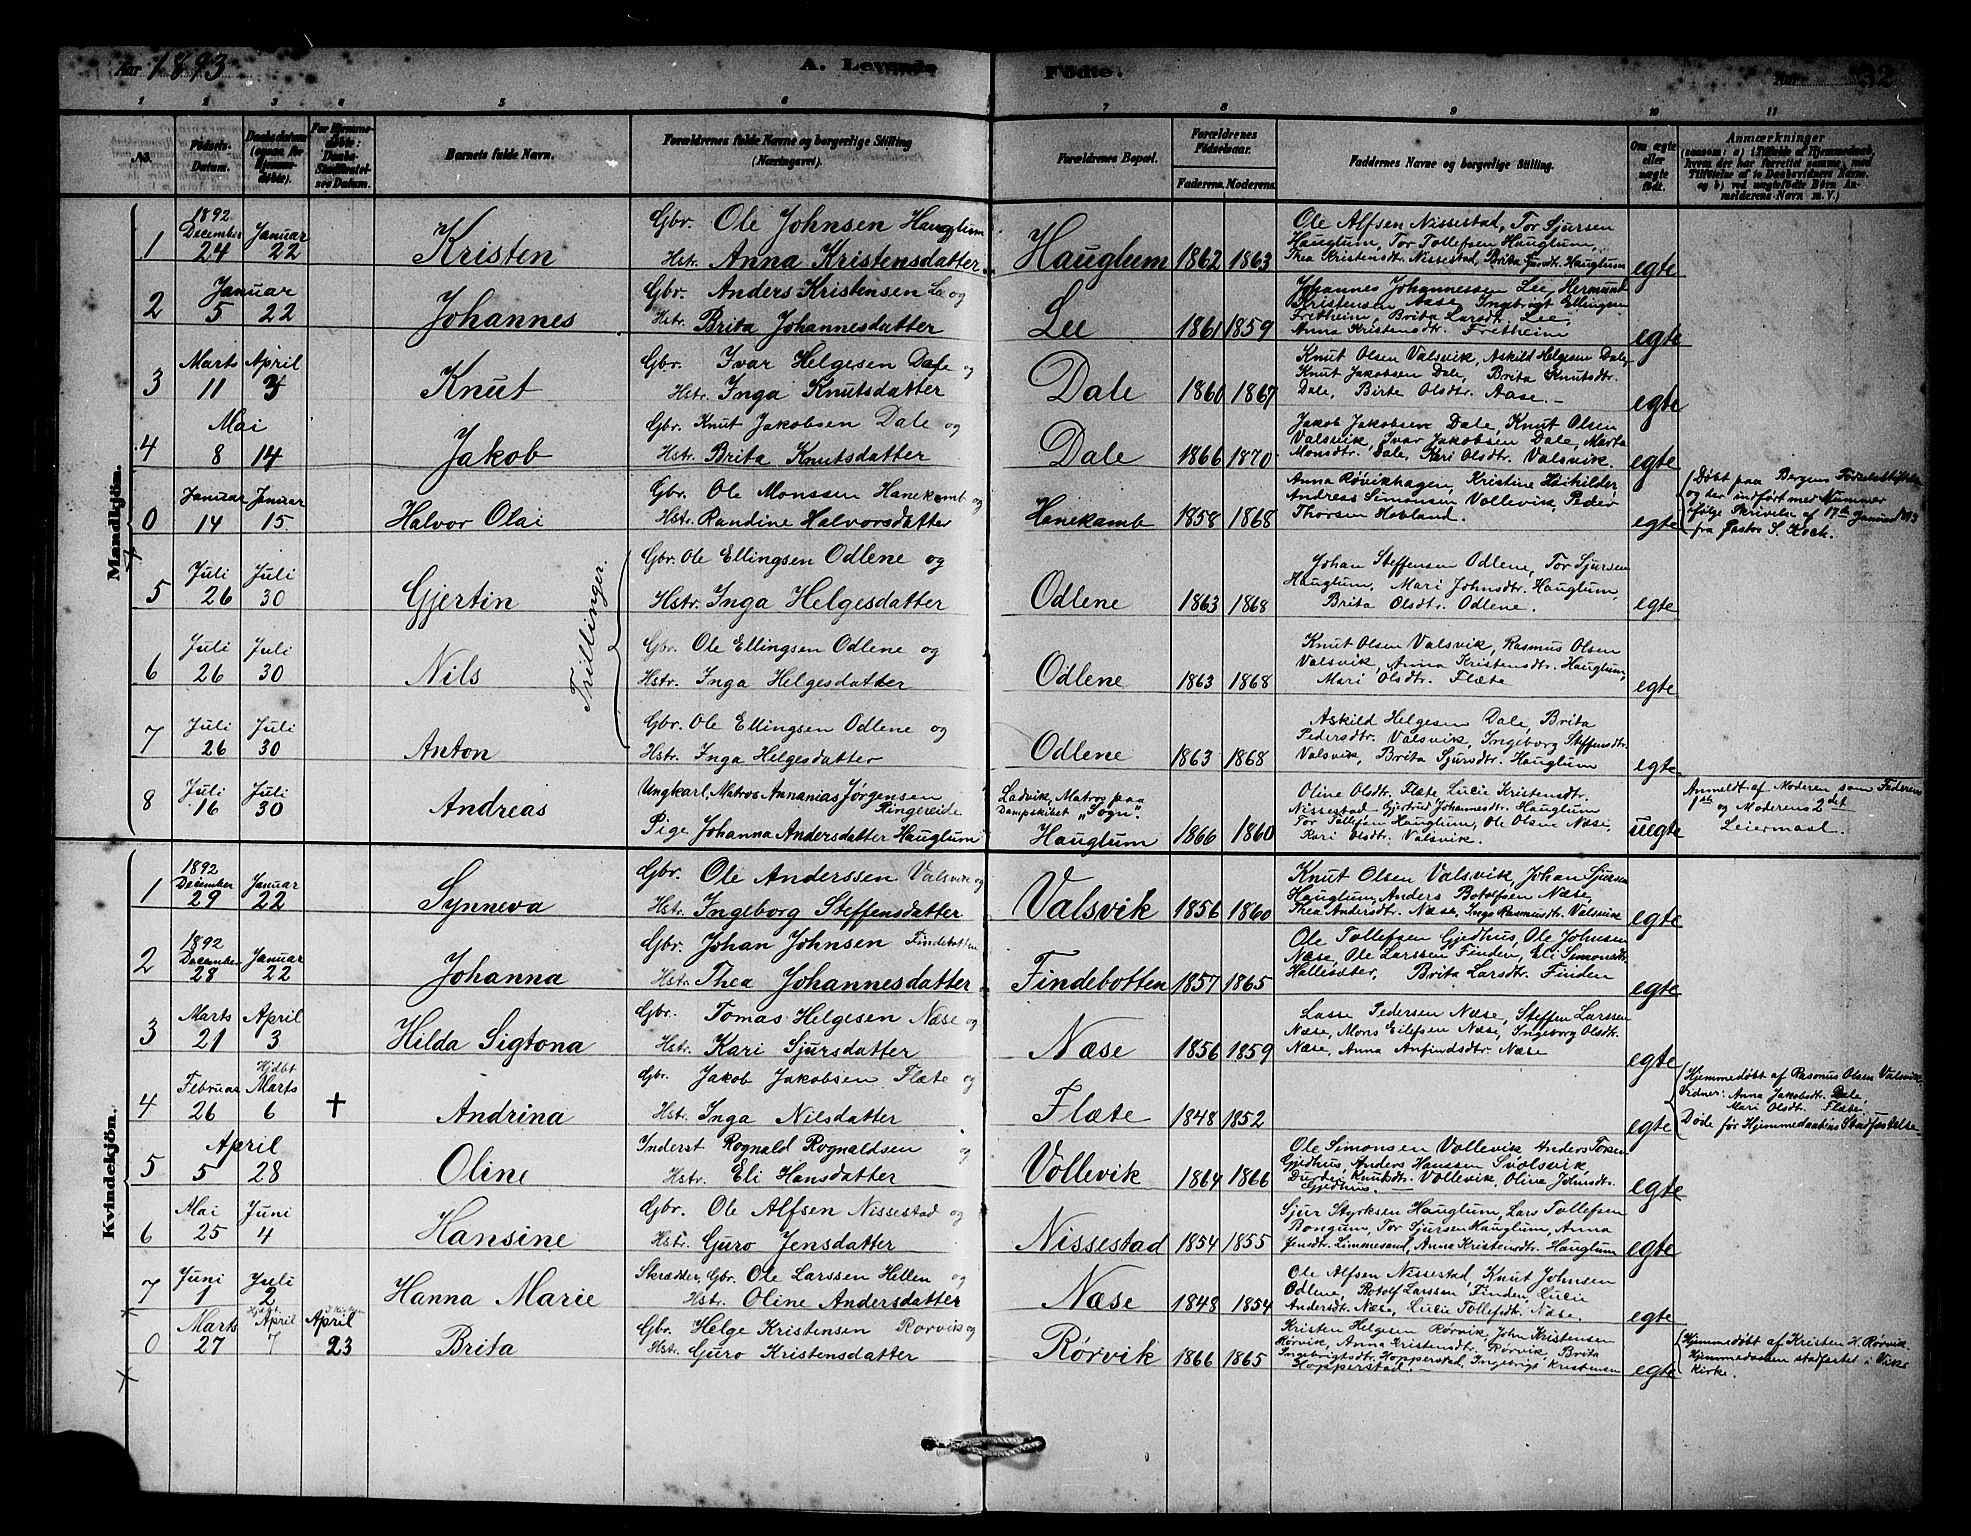 Aar 1893
A. Levende Fødte.
Aar 32
1 2 3 4 5 6 7 8 9 10 11
No.
Fødsels-Datum.
Daabsdatum (ogsaa for Hjemmedøbte).
For Hjemmedøbte: Daabs-Stadfæstelsens Datum.
Barnets fulde Navn.
Forældrenes fulde Navne og borgerlige Stilling (Næringsvei).
Forældrenes Bopæl.
Forældrenes Fødselsaar.
Faderens. Moderens.
Faddernes Navne og borgerlige Stilling.
Om ægte eller uægte født.
Anmærkninger
(saasom: a) i Tilfælde af Hjemmedaab, hvem der har forrettet samme, med Tilføielse af to Daabsvidners Navne. og b) ved uægtefødte Børn Anmelderens Navn m. V.)
Mandkjön.
1 1892 December 24 Januar 22 Kristen
Gbr. Ole Johnsen Hauglum
Hst. Anna Kristensdatter
Hauglum 1862 1863
Ole Alfsen Nissestad, Tor Sjursen
Hauglum, Tor Tollefsen Hauglum,
Thea Kristensdt. Nissestad, Brita Hauglum
egte
2 Januar 5 22 Johannes
Gbr. Anders Kristensen Lee og
Hst. Brita Johannesdatter
Lee 1861 1859
Johannes Johannessen Lee, Hermund
Kristensen Aase, Ingebrigt Ellingsen
Fretheim, Brita Larsdt. Lee,
Anna Kristensdt. Fretheim
egte
3 Marts 11 April 3 Knut
Gbr. Ivar Helgesen Dale og
Hstr. Inga Knutsdatter
Dale 1860 1867
Knut Olsen Valsvik, Askild Helgesen Dale,
Knut Jakobsen Dale, Brita Knutsdtr.
Dale, Birte Olsdtr. Aase.
egte
4 Mai 8 14 Jakob
Gbr. Knut Jakobsen Dale og
Hst. Brita Knutsdatter
Dale 1866 1870
Jakob Jakobsen Dale, Knut Olsen
Valsvik, Ivar Jakobsen Dale, Marta
Monsdtr. Dale, Kari Olsdtr. Valsvik.
egte
0 Januar 14 Januar 15 Halvor Olai
Gbr. Ole Monssen Hanekamb og
Hst. Randine Halvorsdatter
Hanekamb 1858 1868
Anna Røvikhagen, Kristine
Andreas Simonsen Vollevik, Peder
Thorsen Hovland.
egte
Døbt paa Bergens Fødselsstiftelse
og her indført med Nummer
følge Skrivelse af 17de Januar 1893
fra Pastor S. Koch.
Trillinger.
5 Juli 26 Juli 30 Gjertin
Gbr. Ole Ellingsen Odlene og
Hstr. Inga Helgesdatter
Odlene 1863 1868
Johan Steffensen Odlene, Tor Sjursen
Hauglum, Mari Johnsdtr. Hauglum,
Brita Olsdtr. Odlene.
egte
6 Juli 26 Juli 30 Nils
Gbr. Ole Ellingsen Odlene og
Hstr. Inga Helgesdatter
Odlene 1863 1868
Knut Olsen Valsvik, Rasmus Olsen
Valsvik, Anna Kristensdtr. Hauglum,
Mari Olsdtr. Flæte
egte
7 Juli 26 Juli 30 Anton
Gbr. Ole Ellingsen Odlene og
Hst. Inga Helgesdatter
Odlene 1863 1868
Askild Helgesen Dale, Brita
Pedersdtr. Valsvik, Ingeborg Steffensdtr.
Valsvik, Brita Sjursdtr. Hauglum
egte
8 Juli 16 Juli 30 Andreas
Ungkarl, Matros Annanias Jørgensen
Ringereide
Pige Johanna Andersdatter Hauglum
Ladvik, Matros paa
Dampskibet "Sogn".
Hauglum 1866 1860
Oline Olsdt. Flæte Lucie Kristensdtr.
Nissestad, Gjertrud Johannesdtr. Hauglum
Tor Tollefsen Hauglum, Ole Olsen Næse,
Kari Olsdtr. Valsvik.
uegte
Anmeldt af Moderen som Faderens
1ste og Moderens 2det
Leiermaal.
Kvindekjön.
1 1892 December 29 Januar 22 Synneva
Gbr. Ole Anderssen Valsvik og
Hst. Ingeborg Steffensdatter
Valsvik 1856 1860
Knut Olsen Valsvik, Johan Sjursen
Hauglum, Anders Botolfsen Næse,
Thea Andersdtr. Næse, Inga Rasmusdtr. Valsvik
egte
2 1892 December 28 Januar 22 Johanna
Gbr. Johan Johnsen Findebotten
Hst. Thea Johannesdatter
Findebotten 1857 1865
Ole Tollefsen Gjedhus, Ole Johnsen
Næse, Ole Larssen Finden, Eli Simonsdt.
Hallesæter, Brita Larsdt. Finden
egte
3 Marts 21 April 3 Hilda Sigtona
Gbr. Tomas Helgesen Næse og
Hst. Kari Sjursdatter
Næse 1856 1859
Lasse Pedersen Næse, Steffen Larssen
Næse, Mons Eilefsen Næse, Ingeborg Olsdt.
Næse, Anna Anfindsdtr. Næse
egte
4 Februar 26 Hjdbt Marts 6 † Andrina
Gbr. Jakob Jakobsen Flæte og
Hst. Inga Nilsdatter
Flæte 1848 1852
egte
Hjemmedøbt af Rasmus Olsen Valsvik
Vidner: Anna Jakobsdt. Dale,
Mari Olsdt. Flæte.
Døde før Hjemmedaabens Stadfæstelse
5 April 5 28 Oline
Inderst Rognald Rognaldsen og
Hstr. Eli Hansdatter
Vollevik 1864 1866
Ole Simonsen Vollevik Anders Torsen
Gjedhus, Anders Hanssen Svolsvik,
Durdei Knutsdt. Vollevik, Oline Johnsdt.
Gjedhus.
egte
6 Mai 25 Juni 4 Hansine
Gbr. Ole Alfsen Nissestad og
Hst. Guro Jensdatter
Nissestad 1854 1855
Sjur Styrksen Hauglum, Lars Tollefsen
Bongum, Tor Sjursen Hauglum, Anna
Jensdtr. Limmesand, Anna Kristensdtr. Hauglum
egte
7 Juni 1 Juli 2 Hanna Marie
Skrædder, Gbr. Ole Larssen Hellen og
Hst. Oline Andersdatter
Næse 1848 1854
Ole Alfsen Nissestad, Knut Johnsen
Odlene, Botolf Larssen Finden, Lucie
Andersdt. Næse, Lucie Tollefsdt. Næse.
egte
0 Marts 27 Hjdbt. April 7 April 23 Brita
Gbr. Helge Kristensen Rørvik og
Hst. Guro Kristensdatter
Rørvik 1866 1865
Kristen Helgesen Rørvik, John Kristensen
Rørvik, Anna Kristensdtr. Rørvik, Brita
Ingebrigtsdtr. Hopperstad, Ingebrigt Kristensen
Hopperstad.
egte
Hjemmedøbt af Kristen H. Rørvik.
Hjemmedaaben stadfæstet i Viks
Kirke.